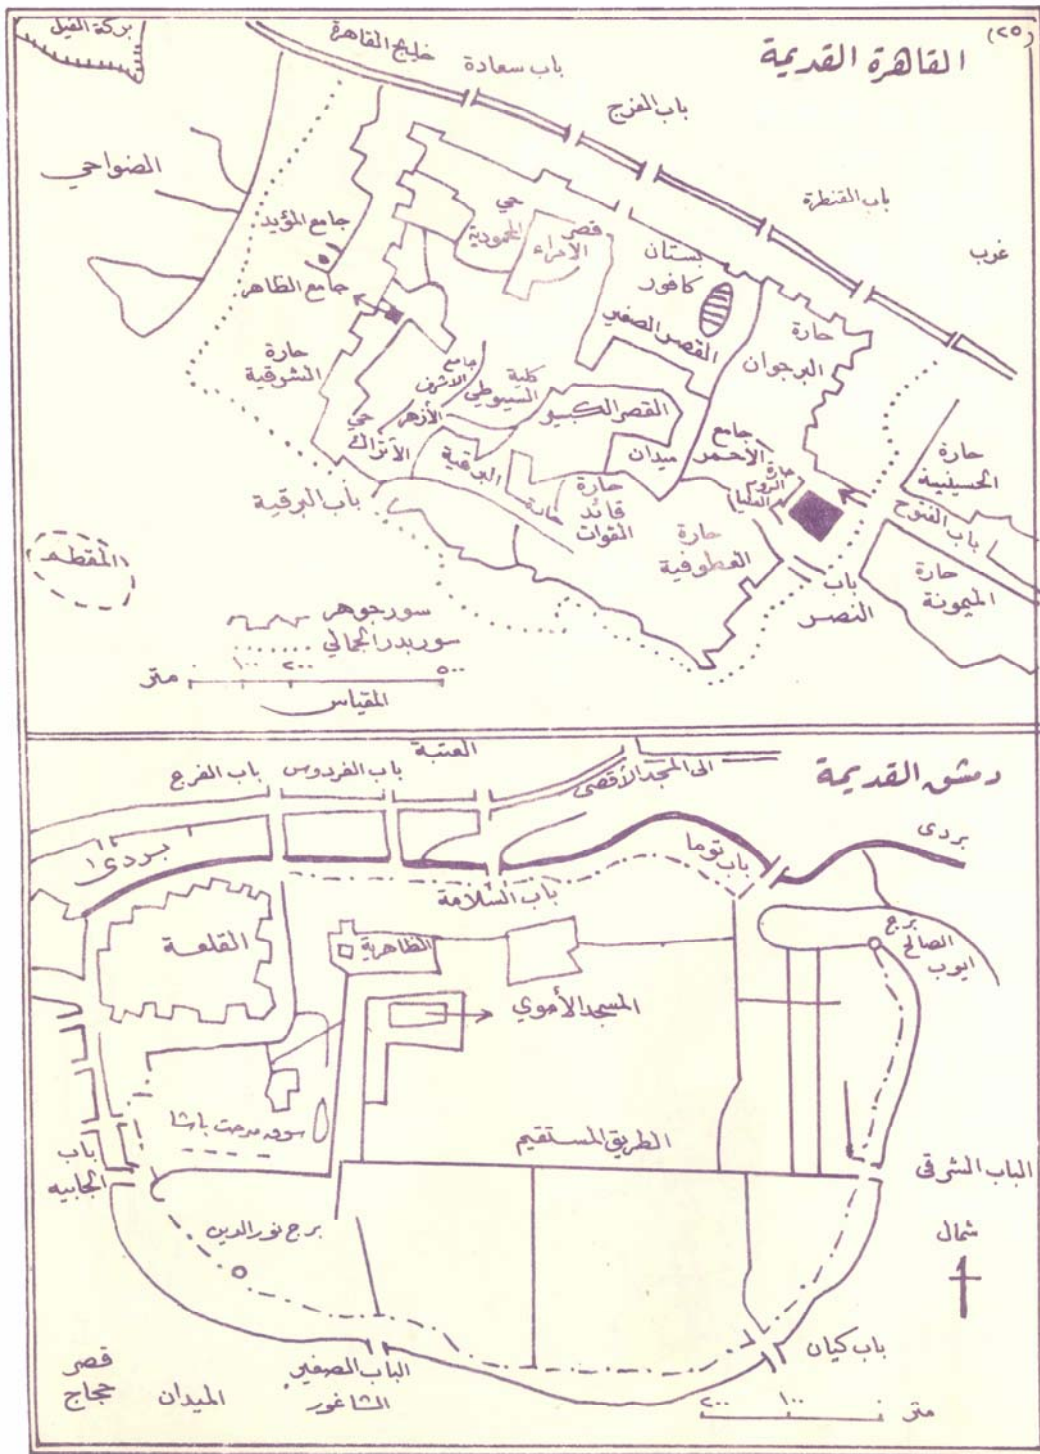 (٢٥)
القاهرة القديمة
بركة الفيل
خليج القاهرة
باب سعادة
باب الفرج
باب القنطرة
غرب
الضواحي
جامع المؤيد
جامع الظاهر
حارة
المشوقية
حي
المحمودية
قصر
الأمراء
بستان
كافور
القصر الصغير
حارة
البرجوان
جامع
الاشرف
كلية
السيوطي
الأزهر
حي
الأتراك
القصر الكبير
ميدان
جامع
الأحمر
حارة
الروم
العليا
البرقية
حارة
حارة
قائد
القوات
حارة
العطوفية
باب البرقية
حارة
الحسينية
باب الفتوح
حارة
الميمونة
باب
النصر
المقطم
سور جوهر
سور بدر الجمالي
متر ١٠٠ ٢٠٠ ٥٠٠
المقياس
دمشق القديمة
العتبة
باب الفرج
باب الفردوس
الى المسجد الأقصى
بردى
بردى
باب توما
باب السلامة
القلعة
الظاهرية
برج
الصالح
ايوب
المسجد الأموي
سوق مدحت باشا
الطريق المستقيم
باب
الجابيه
الباب الشرقي
برج نور الدين
شمال
باب كيان
قصر
حجاج
الميدان
الباب الصغير
الشاغور
٢٠٠ ١٠٠ متر